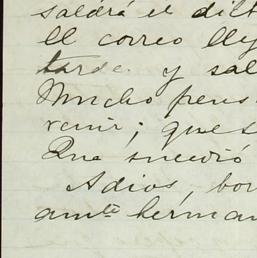 saldrá el
el correo
tarde. y sal
Mucho pens
venir; que s
Que sucedió
Adios, bor
amte herman